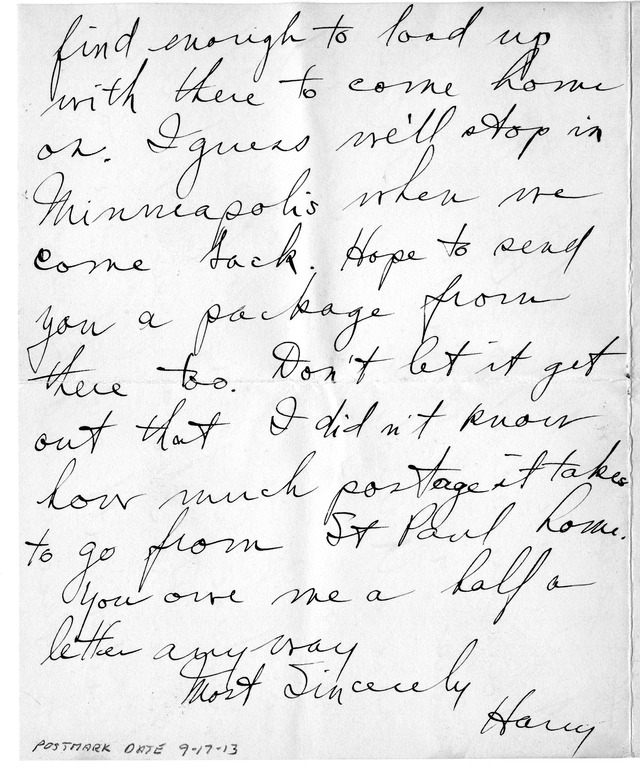 find enough to load up
with there to come home
on. I guess we'll stop in
Minneapolis when we
come back. Hope to send
you a package from
there too. Don't let it get
out that I didn't know
how much postage it takes
to go from St Paul home.
You owe me a half a
letter anyway
Most Sincerely
Harry
POSTMARK DATE 9-17-13